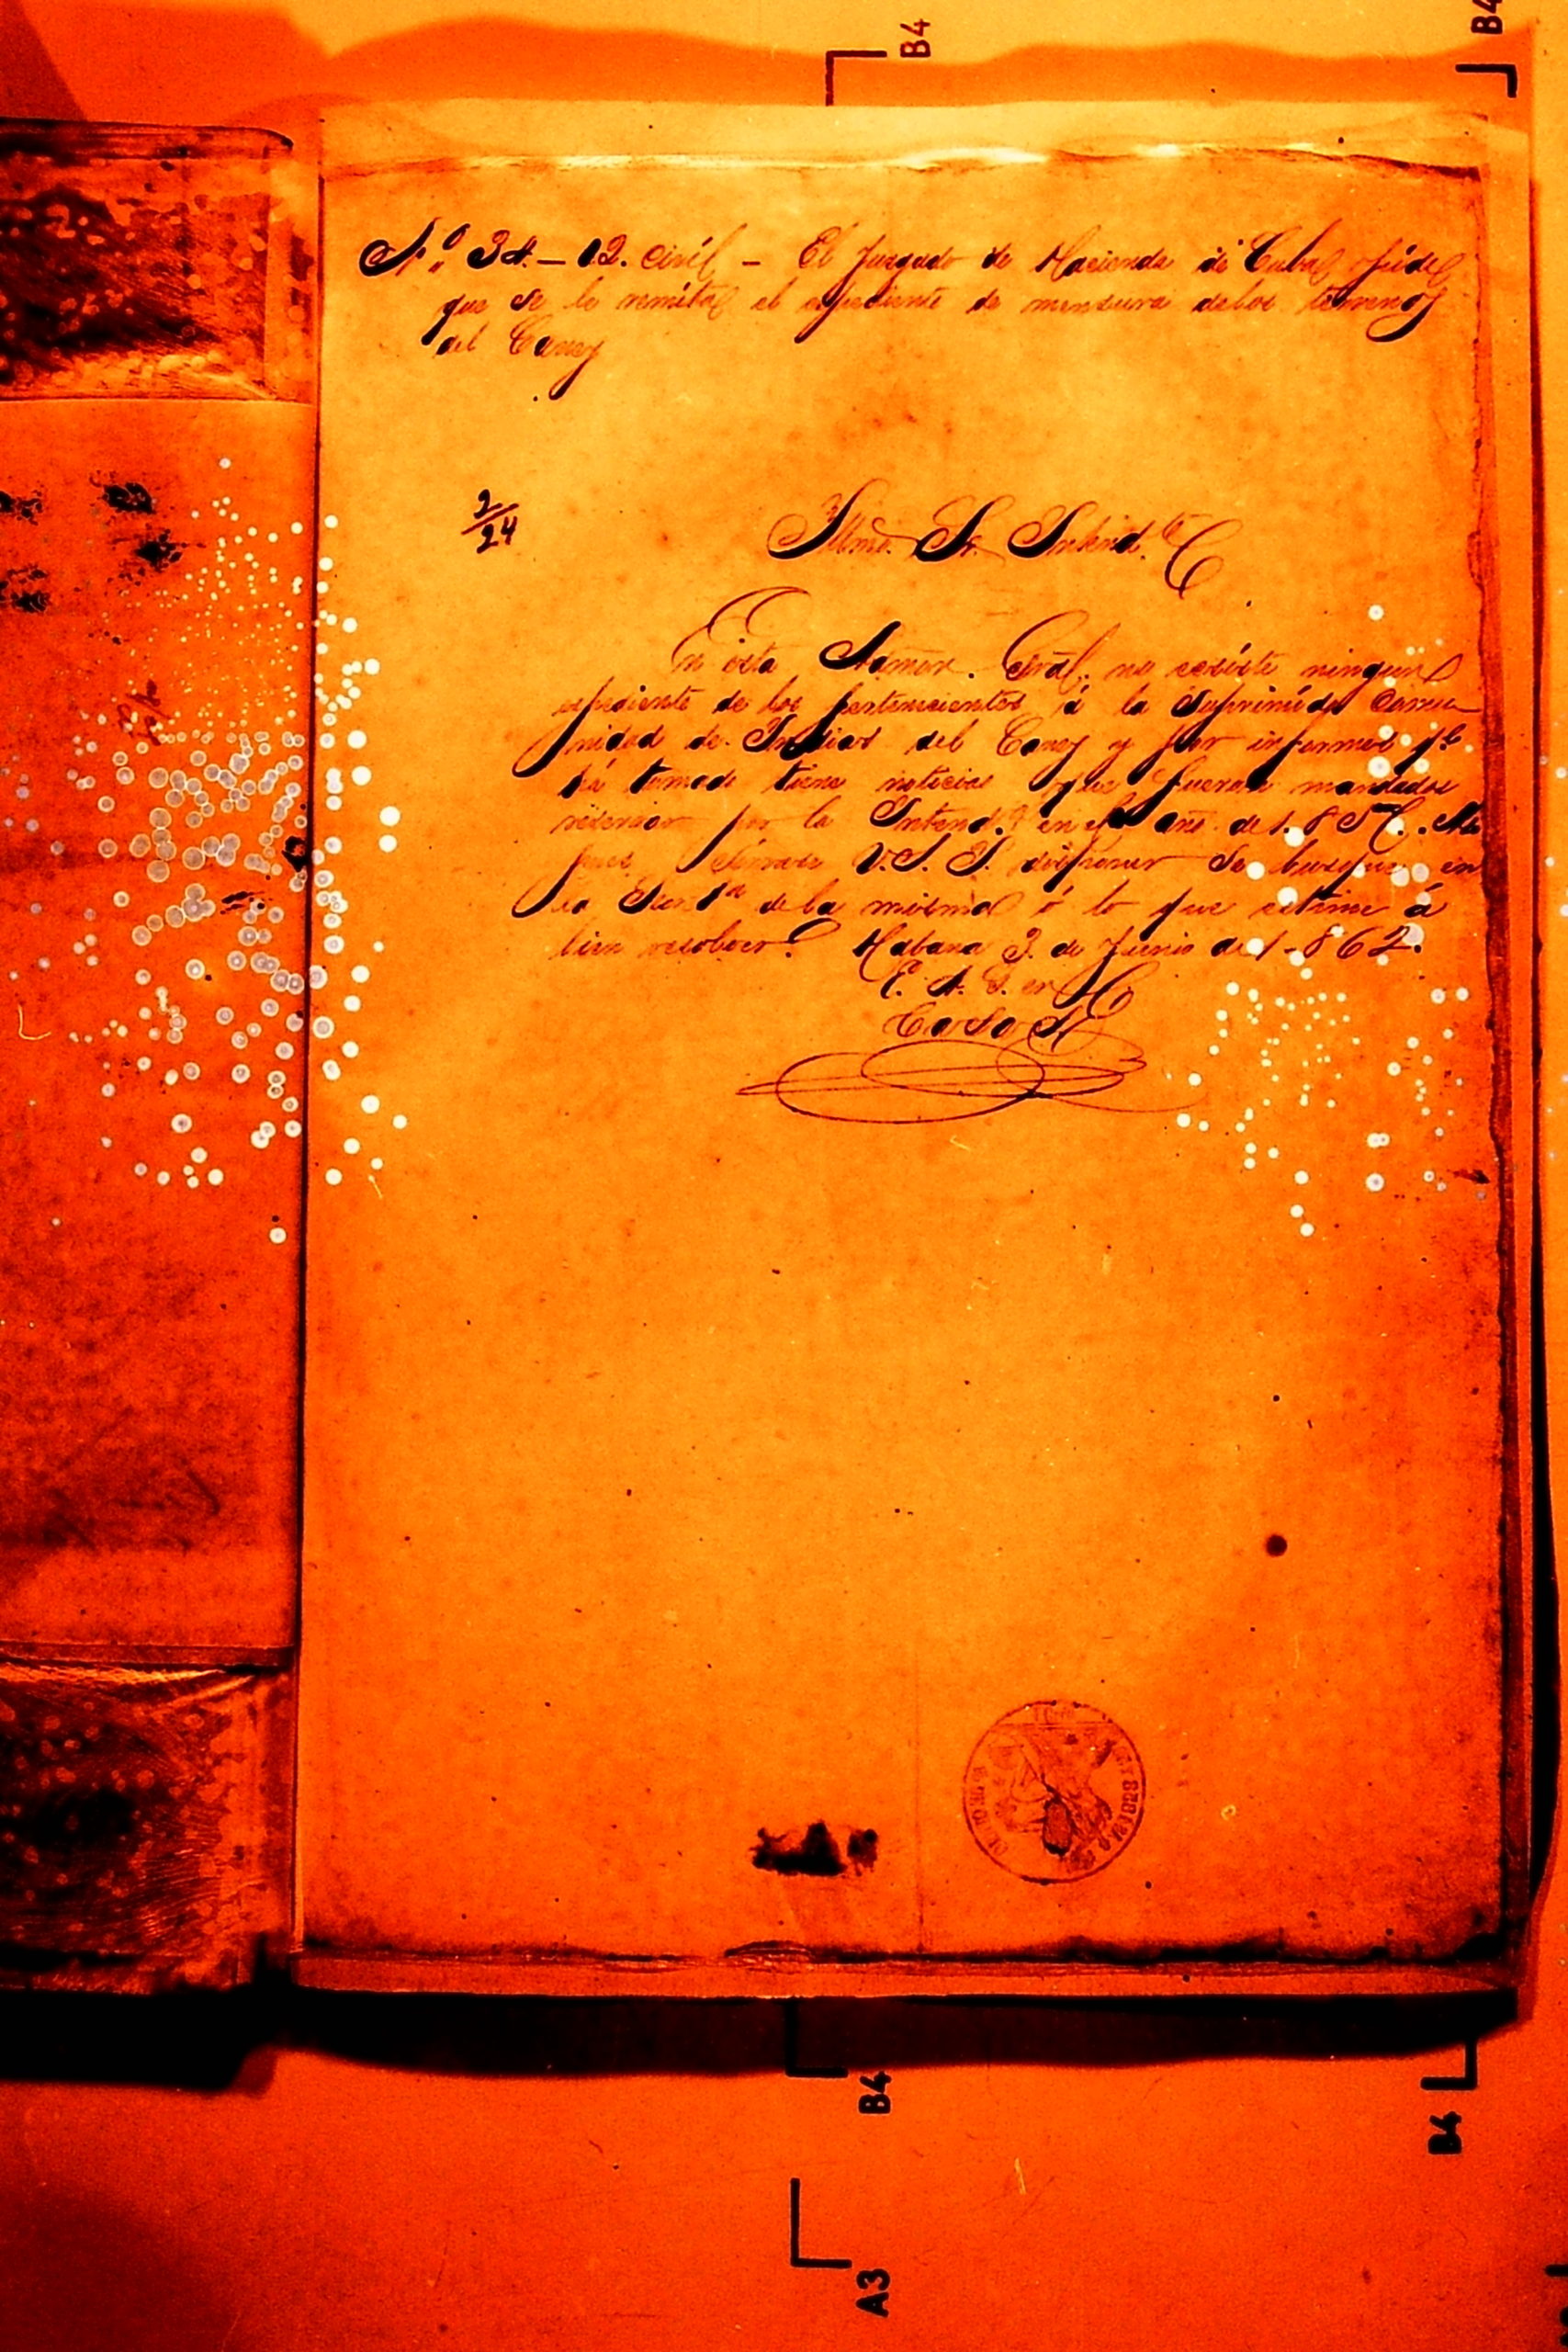 B4
B4
Nº 34.—12. Civil — El Juzgado de Hacienda de Cuba, pide
que se le remita el espediente de mensura delos terrenos
del Caney
2/24
Illmo. Sr. Intend.te
En esta Admon. Gral. no ecsiste ningun
espediente de los pertenecientes á la suprimida Comu
nidad de Indios del Caney y por informes q.e
há tomado tiene noticias que fueron mandados
por la Intend.a en el año de 1.85
pues Sirvase V.S.I. disponer se busque en
la de la misma ó lo que estime á
bien resolver. Habana 3. de Junio de 1.862.
E. A. G. en
B4
B4
A3